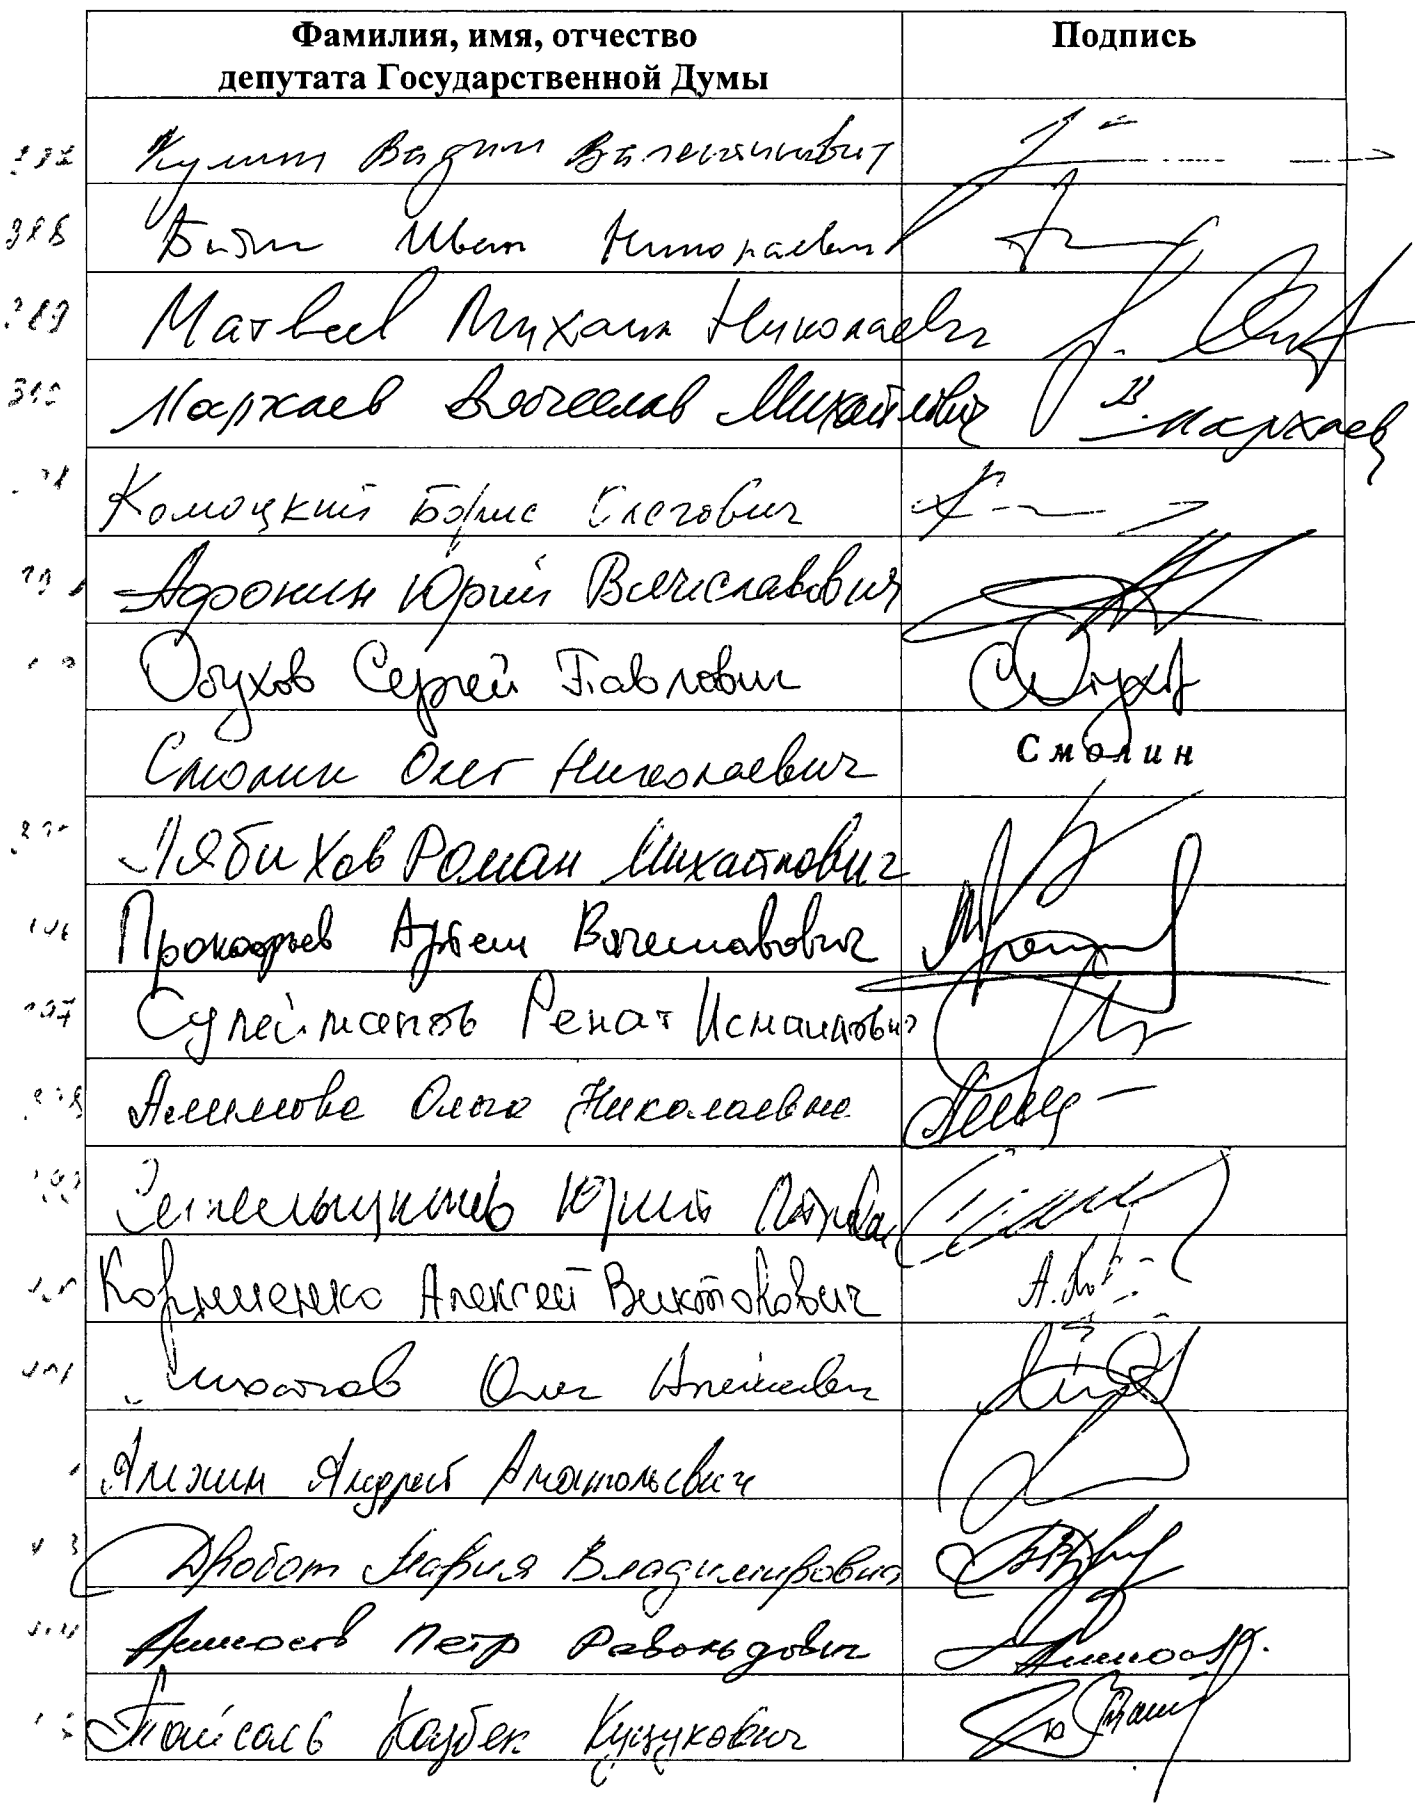 Фамилия, имя, отчество
депутата Государственной Думы
Подпись
Кумин Вадим Валентинович
388 Бабич Иван Николаевич
389 Матвеев Михаил Николаевич
Мархаев Вячеслав Михайлович В. Мархаев
Комоцкий Борис Олегович
Афонин Юрий Вячеславович
Обухов Сергей Павлович СОбухов
Смолин Олег Николаевич Смолин
Лябихов Роман Михайлович
Прокофьев Артем Вячеславович
Сулейманов Ренат Исмаилович
Алимова Ольга Николаевна
Синельщиков Юрий Петрович
Корниенко Алексей Викторович
Михайлов Олег Алексеевич
Алехин Андрей Анатольевич
Дробот Мария Владимировна
Аммосов Петр Револьдович Аммосов
Тайсаев Казбек Куцукович